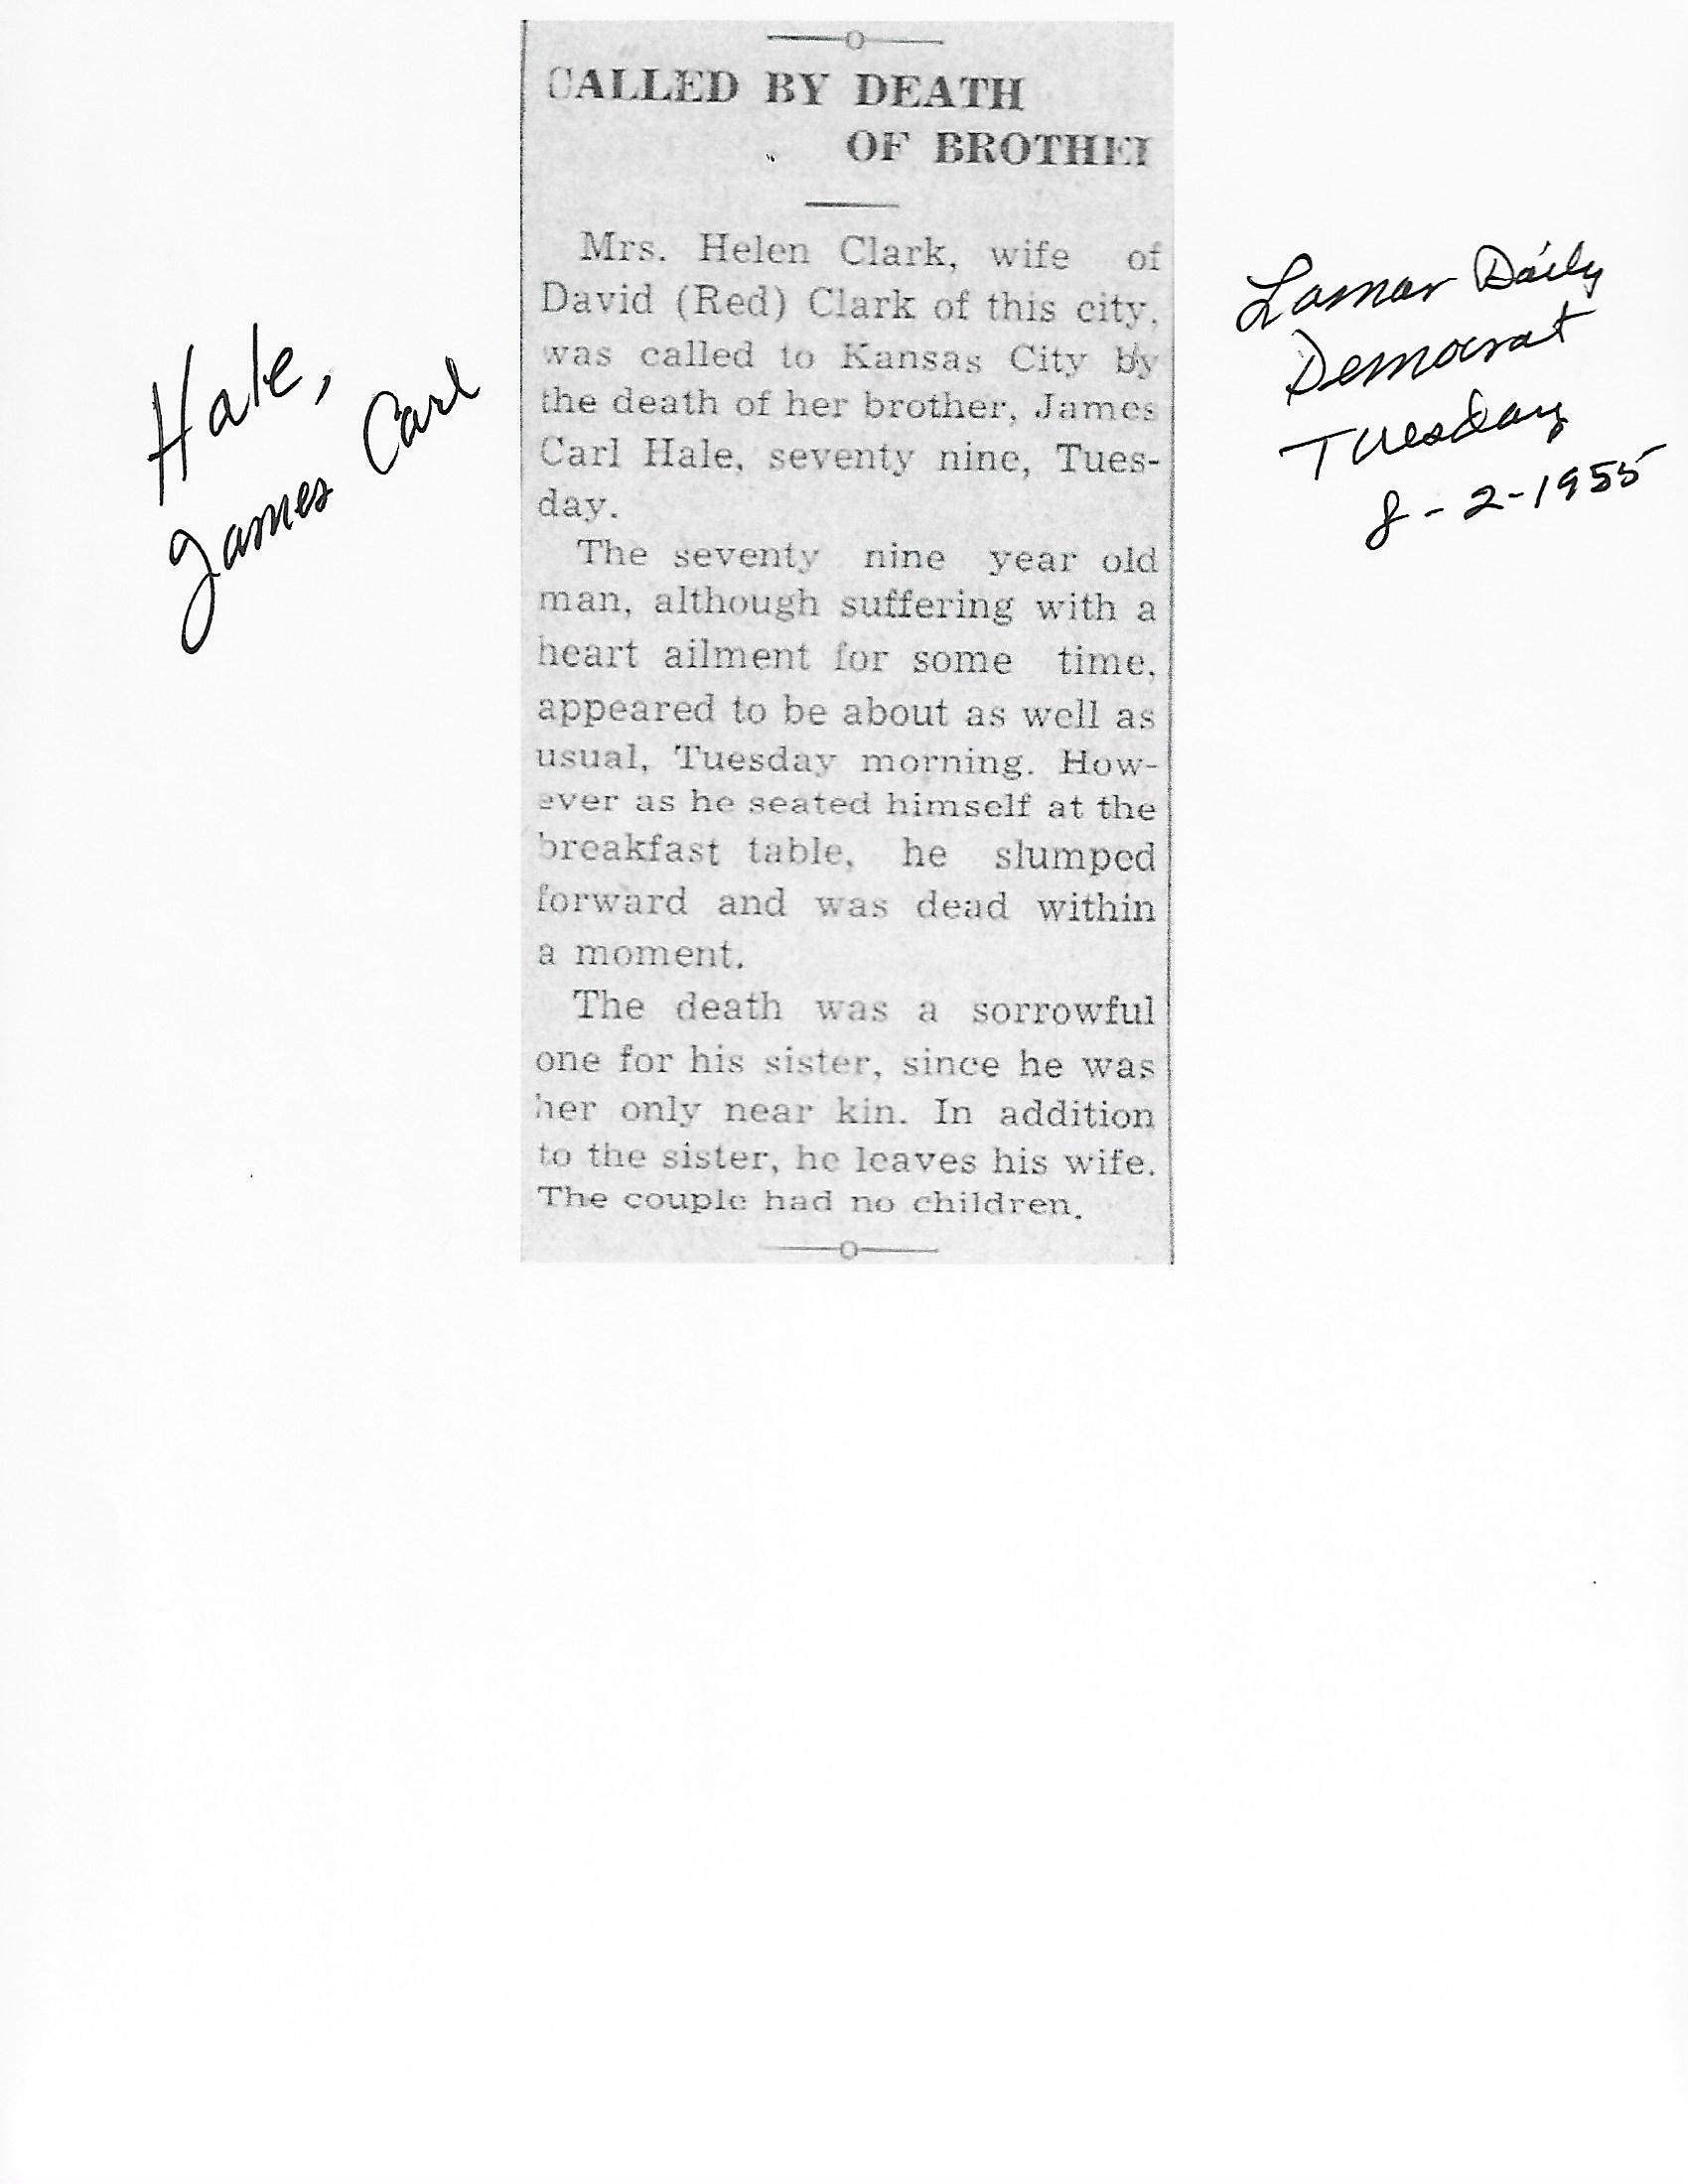 CALLED BY DEATH
OF BROTHER
Mrs. Helen Clark, wife of
David (Red) Clark of this city,
was called to Kansas City by
the death of her brother, James
Carl Hale, seventy nine, Tues-
day.
The seventy nine year old
man, although suffering with a
heart ailment for some time,
appeared to be about as well as
usual, Tuesday morning. How-
ever as he seated himself at the
breakfast table, he slumped
forward and was dead within
a moment.
The death was a sorrowful
one for his sister, since he was
her only near kin. In addition
to the sister, he leaves his wife.
The couple had no children.
Hale,
James Carl
Lamar Daily
Democrat
Tuesday
8-2-1955